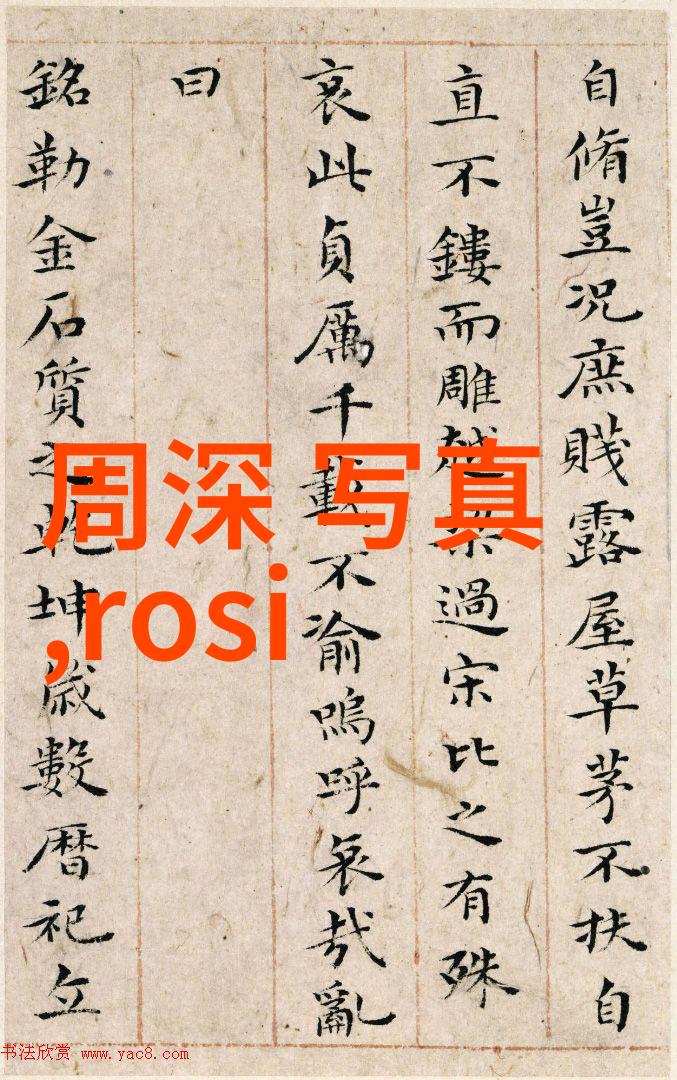 自脩豈況庶賤露屋草茅不扶自
直不鏤而雕越梁過宋比之有殊
哀此貞厲千載不渝嗚呼哀哉亂
曰
銘勒金石質之乾坤歲數暦祀立
周深 写真
,rosi
书法欣赏 www.yac8.com